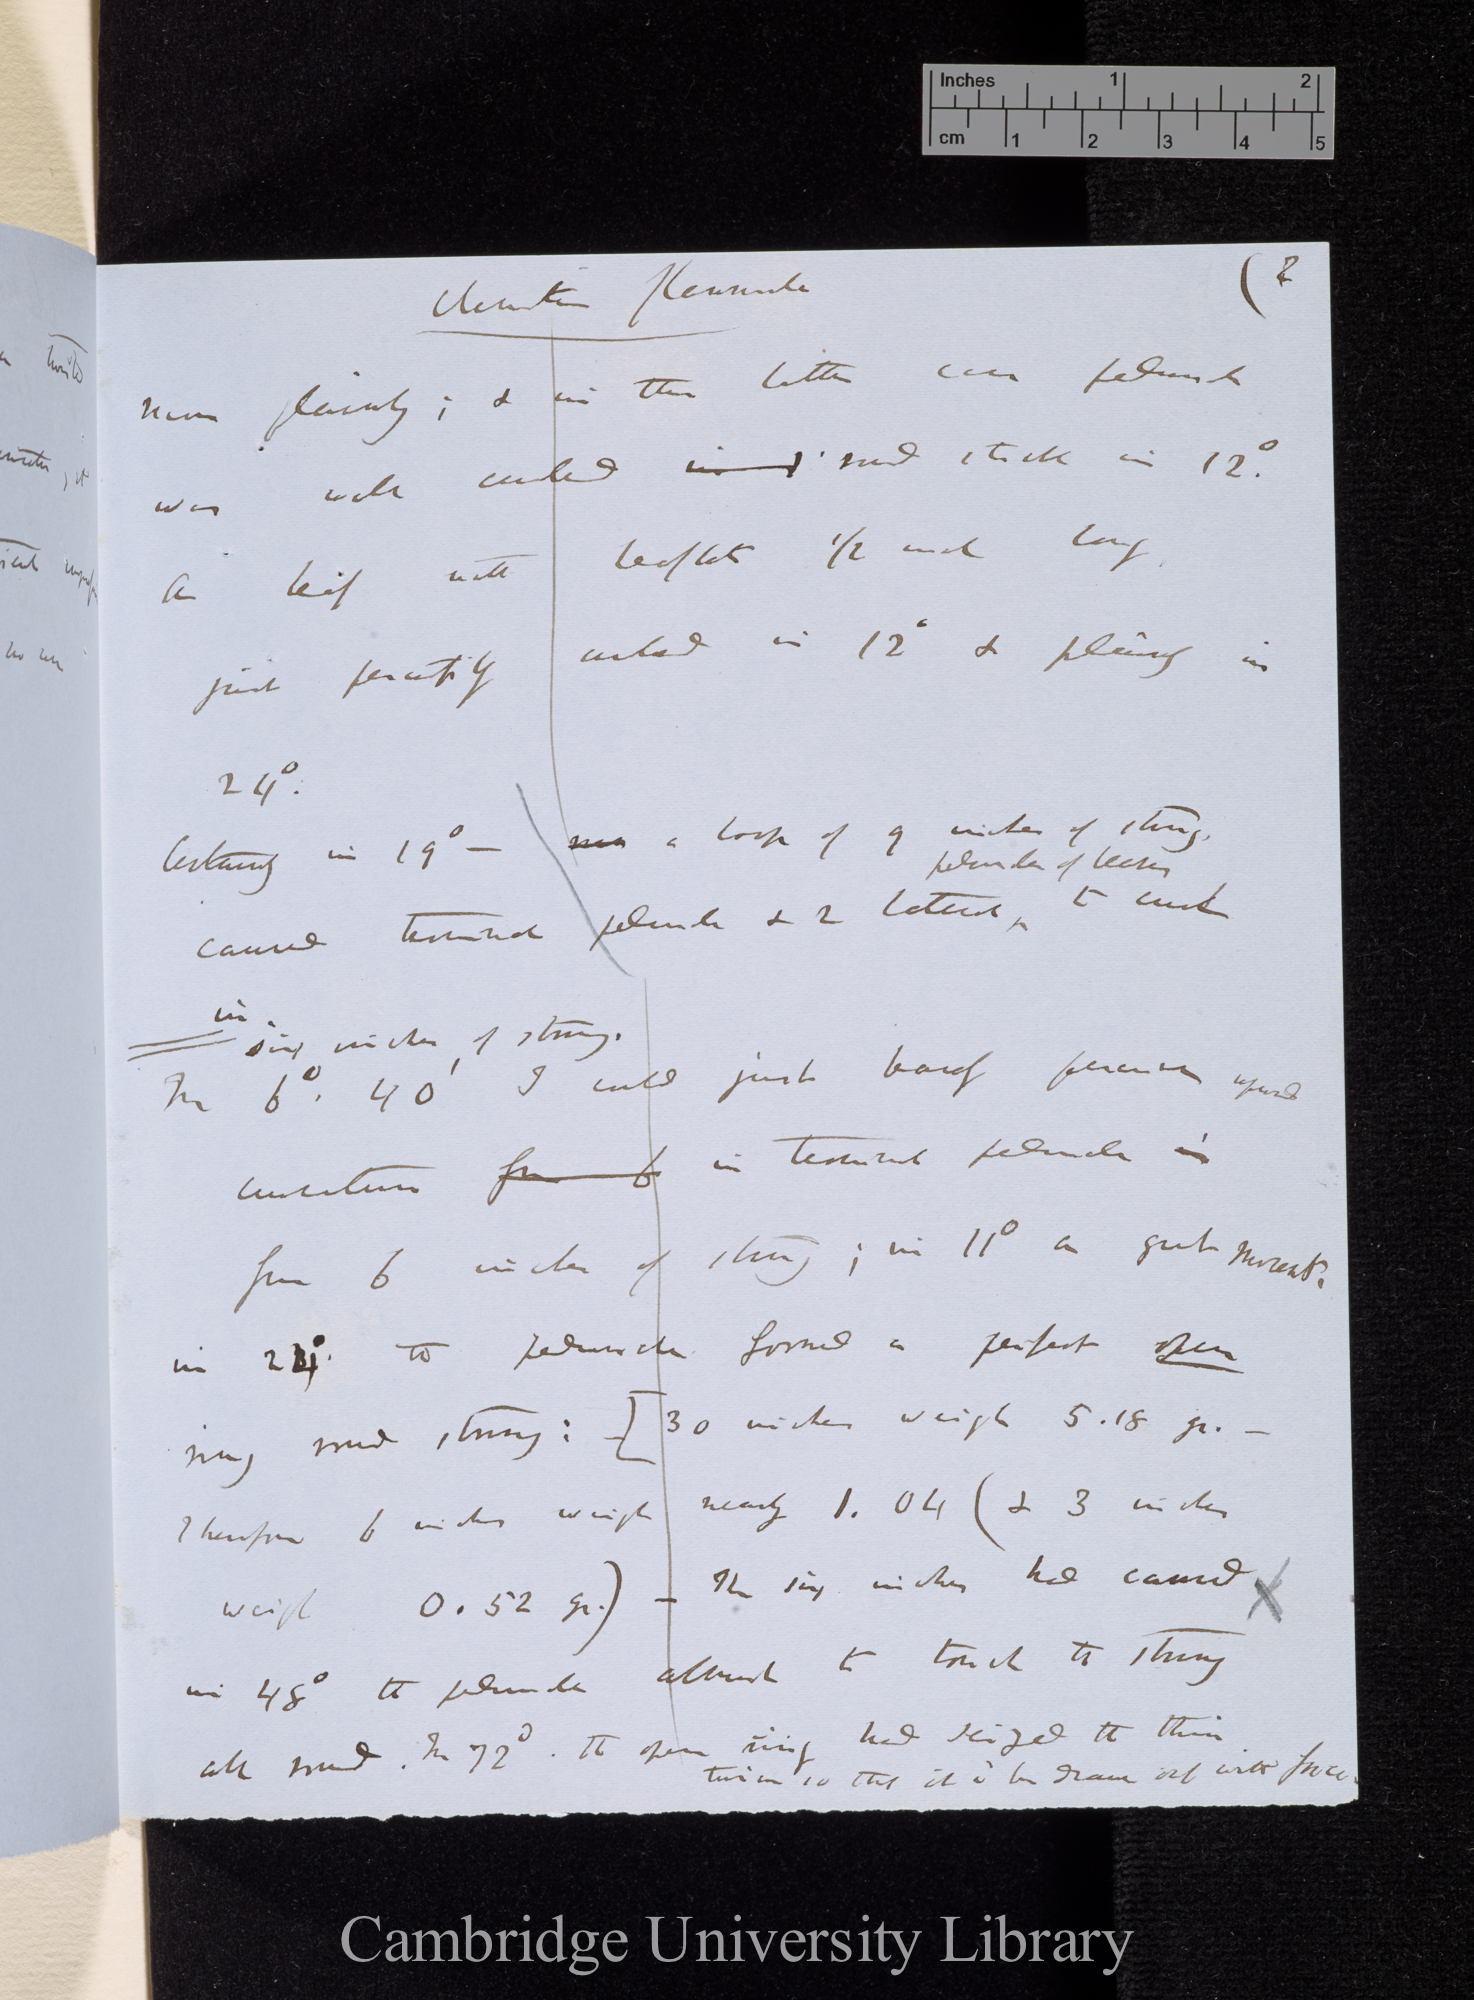 Inches 1 2
cm 1 2 3 4 5
Clematis flammula
(2
more plainly; & in the latter case peduncle
was well curled round stick in 12°.
A leaf with leaflets 1/2 inch long,
just perceptibly curled in 12° & plainly in
24°.
Certainly in 19° — a loop of 9 inches of string.
peduncles of leaves
caused terminal peduncle & 2 lateral to curl
in
six inches of string.
In 6°. 40' I could just barely perceive upward
curvature from 6 in terminal peduncle
from 6 inches of string; in 11° a great movement.
in 24° the peduncle formed a perfect open
ring round string: — [30 inches weigh 5.18 gr. —
Therefore 6 inches weigh nearly 1.04 (& 3 inches
weigh 0.52 gr.) — The six inches had caused
in 48° the peduncle almost to touch the string
all round. In 72°. the open ring had seized the thin
twine so that it to be drawn out with force.
Cambridge University Library